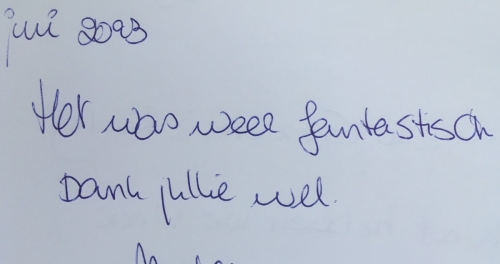 juni 2023
Het was weer fantastisch
Dank jullie wel.